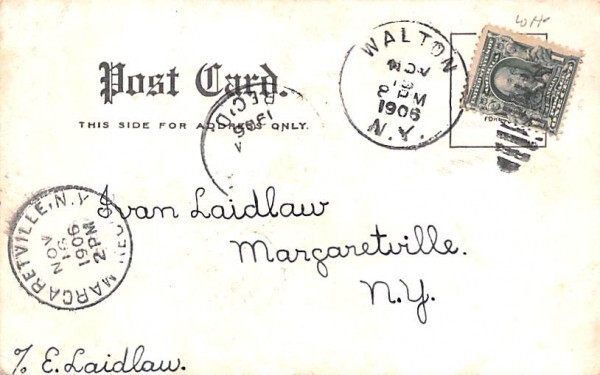 WALTON
NOV
8 PM
1906
N.Y.
Post Card.
THIS SIDE FOR ADDRESS ONLY.
REC'D.
1906
MARGARETVILLE, N.Y.
NOV
16
1906
2 PM
REC'D.
Ivan Laidlaw
Margaretville.
N.Y.
% E. Laidlaw.